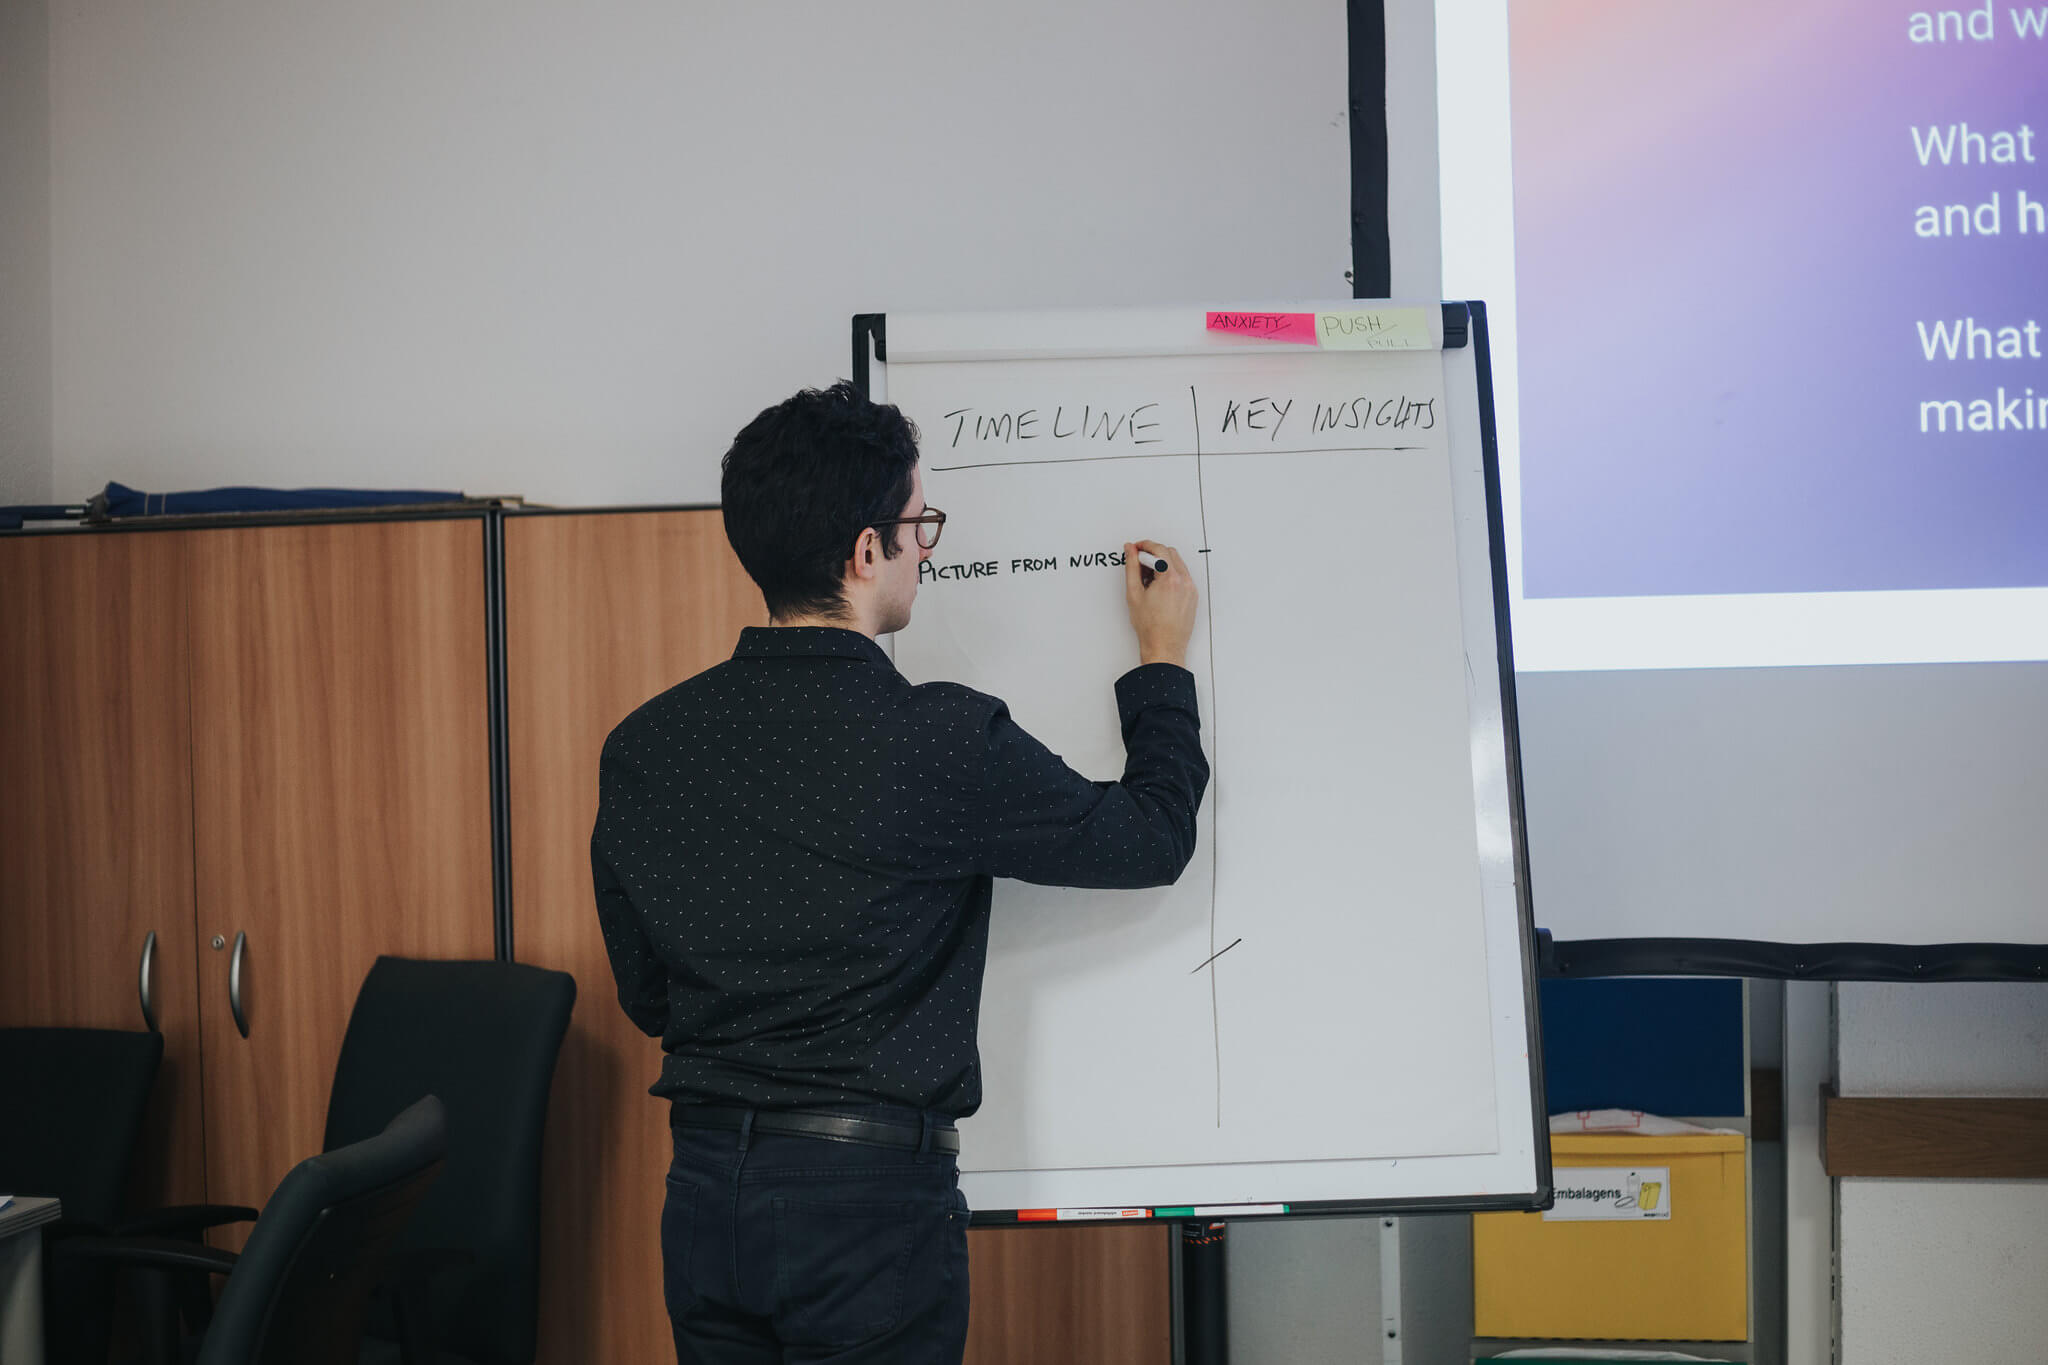 ANXIETY
PUSH/
PULL
TIMELINE
KEY INSIGHTS
PICTURE FROM NURSE
and w
What
and h
What
makin
Embalagens